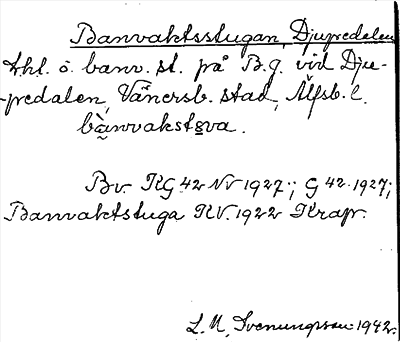 Banvaktsstugan, Djupedalen
Lht. o. banv. st. på B.g. vid Dju-
-pedalen, Vänersb. stad, Älfsb. l.
bànvakstova.
Bv. KG 42 NV 1927; G 42. 1927;
Banvaktstuga KV. 1922 Krap.
L. M. Svenungsson 1942.